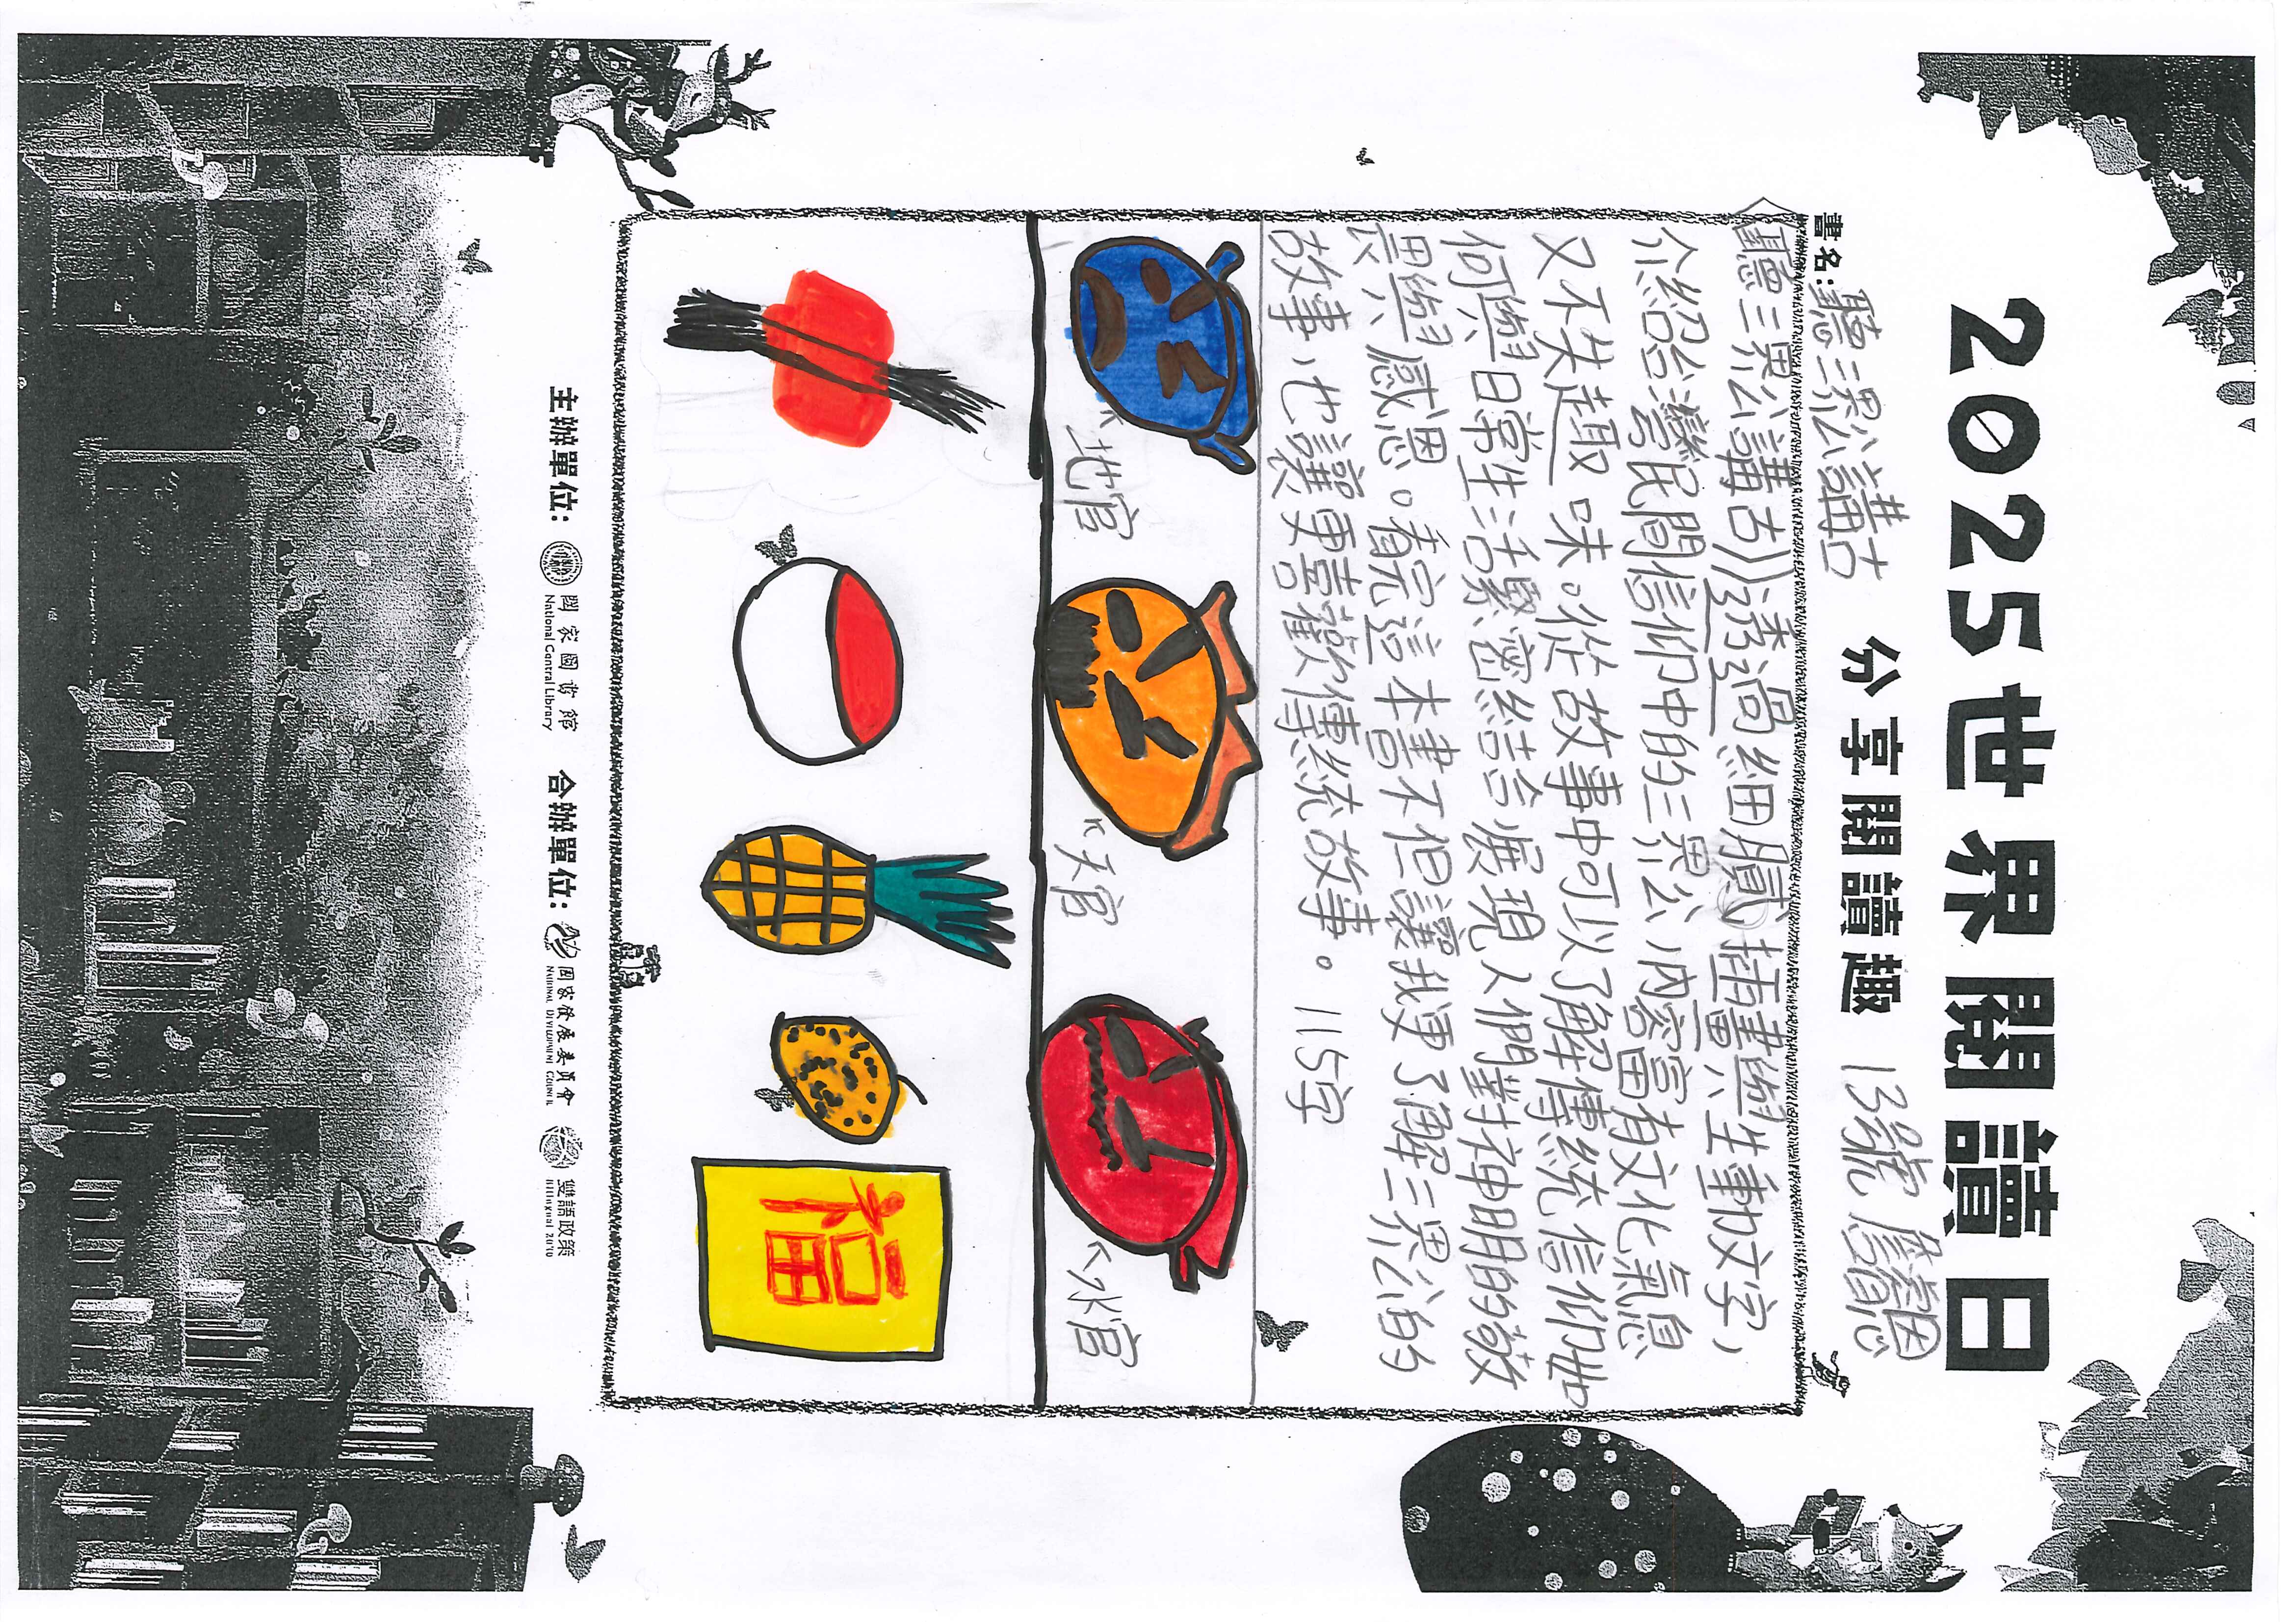 2025世界閱讀日
分享閱讀趣
13號
書名:聽三界公講古
《聽三界公講古》透過細膩插畫與生動文字,
介紹台灣民間信仰中的三界公,內容富有文化氣息
又不失趣味。從故事中可以了解傳統信仰如
何與日常生活緊密結合,展現人們對神明的敬
畏與感恩。看完這本書不但讓我更了解三界公的
故事,也讓更喜歡傳統故事。 115字
↖地官
↖天官
↖水官
福
主辦單位:
國家圖書館
National Central Library
合辦單位:
國家發展委員會
National Development Council
雙語政策
Bilingual 2030